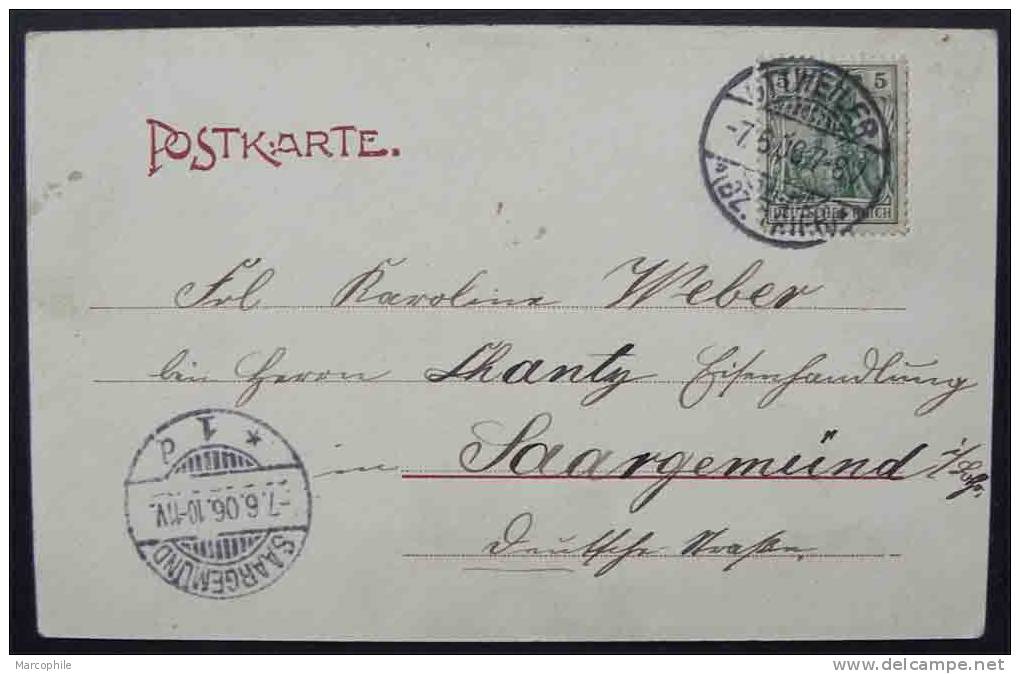 POSTKARTE.
5 5
OTTWEILER
-7.6.06.7-8V
(BZ. TRIER)
DEUTSCHES REICH
Frl Karoline Weber
bei Herrn Chanty Eisenhandlung
in Saargemünd i/Lothr.
Deutsche Straße
* 1 d
-7.6.06.10-11V.
SAARGEMÜND
Marcophile
delcampe.net